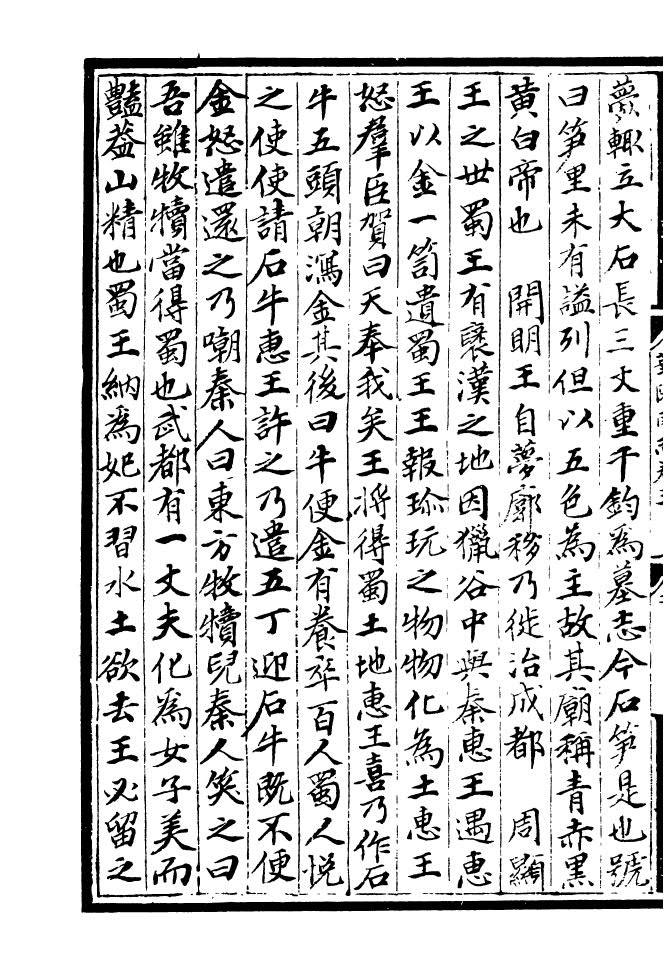 薨輙立大石長三丈重千鈞為墓志今石笋是也號
曰笋里未有謚列但以五色為主故其廟稱青赤黑
黄白帝也　開明王自夢廓移乃徙治成都　周顯
王之丗蜀王有褒漢之地因獵谷中與秦惠王遇惠
王以金一笥遺蜀王王報珍玩之物物化為土惠王
怒羣臣賀曰天奉我矣王將得蜀土地惠王喜乃作石
牛五頭朝瀉金其後曰牛便金有養卒百人蜀人悅
之使使請石牛惠王許之乃遣五丁迎石牛既不便
金怒遣還之乃嘲秦人曰東方牧犢兒秦人笑之曰
吾雖牧犢當得蜀也武都有一丈夫化為女子美而
豔葢山精也蜀王納為妃不習水土欲去王必留之